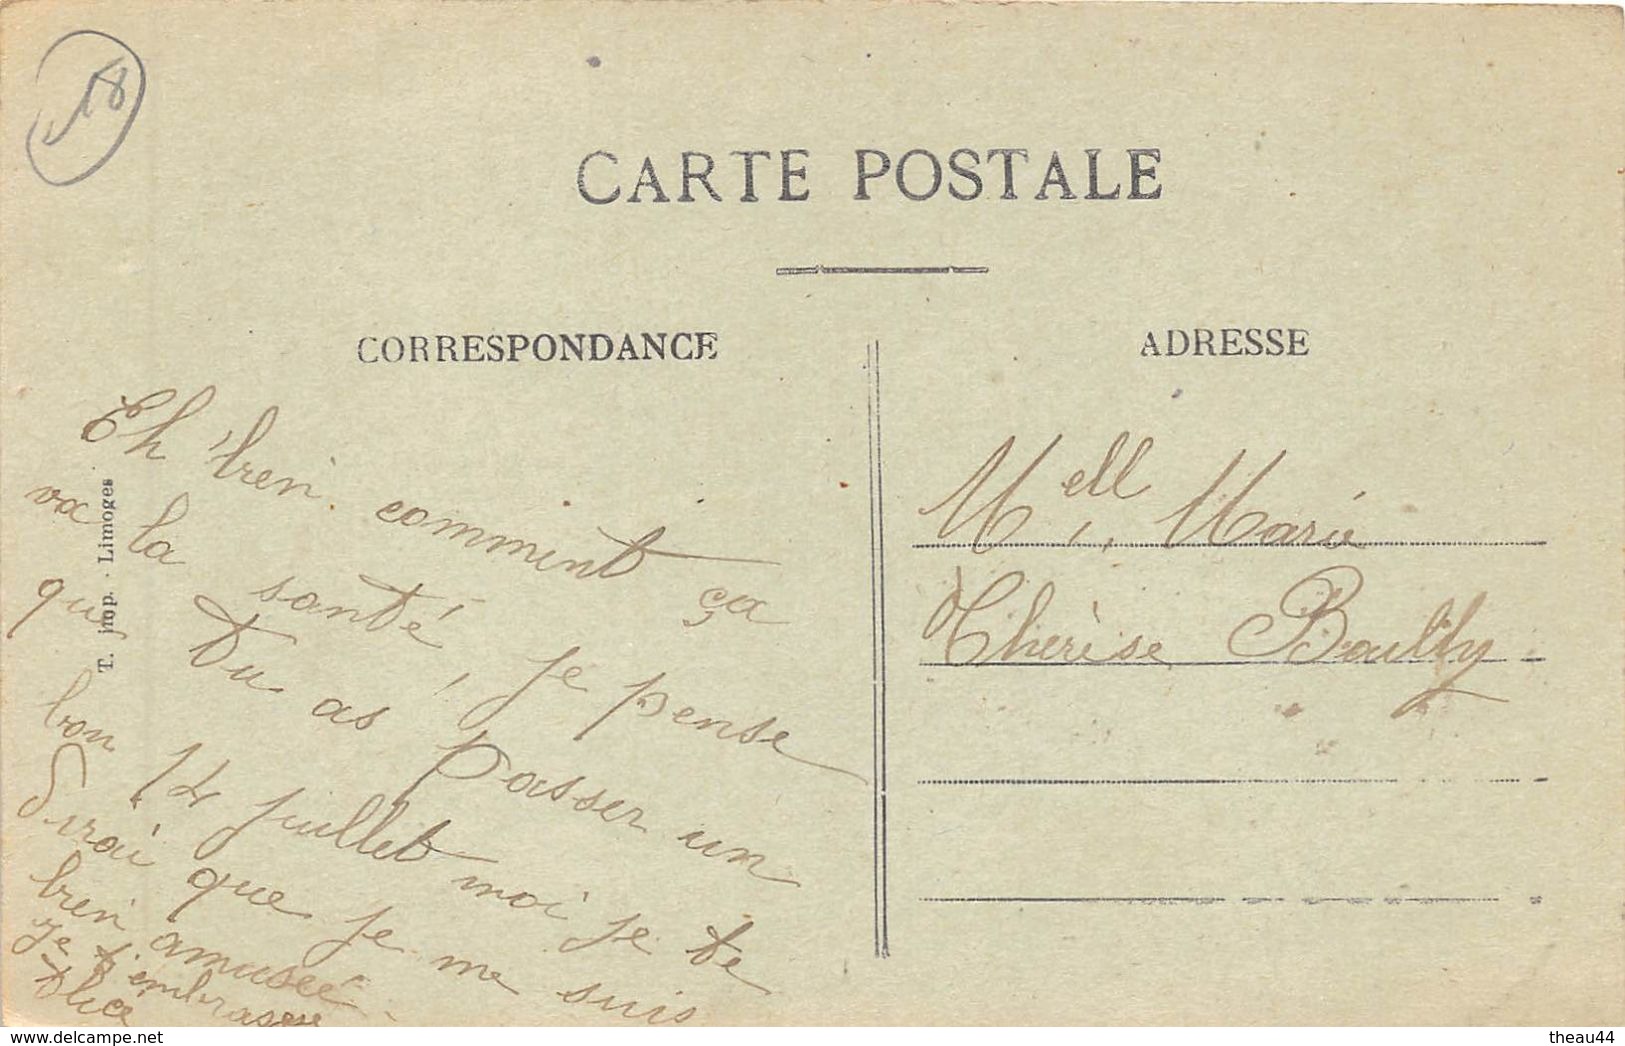 18
CARTE POSTALE
CORRESPONDANCE
ADRESSE
T. prop. - Limoges
Eh bien comment ça
va la santé, je pense
que tu as passer un
bon 14 juillet moi je te
dirai que je me suis
bien amusée
je t'embrasse
Alice
Mell. Marie
Thérèse Boulby
www.delcampe.net
theau44